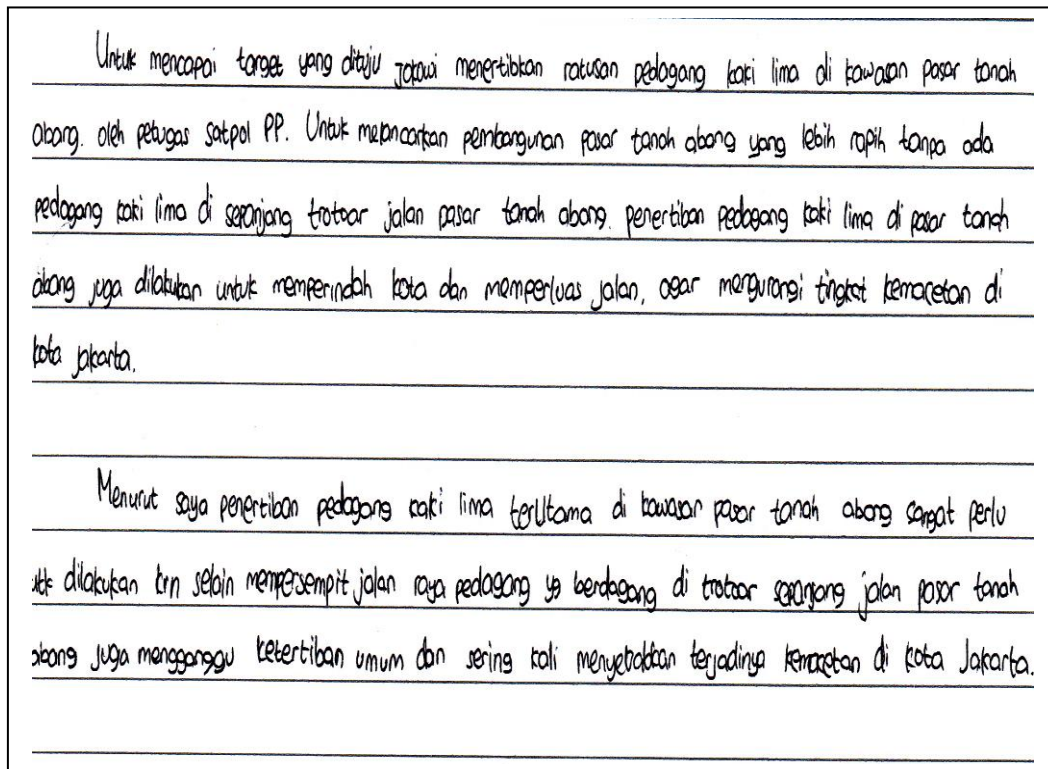 Untuk mencapai target yang dituju jokowi menertibkan ratusan pedagang kaki lima di kawasan pasar tanah
abang. oleh petugas satpol PP. Untuk melancarkan pembangunan pasar tanah abang yang lebih rapih tanpa ada
pedagang kaki lima di sepanjang trotoar jalan pasar tanah abang. penertiban pedagang kaki lima di pasar tanah
abang juga dilakukan untuk memperindah kota dan memperluas jalan, agar mengurangi tingkat kemacetan di
kota jakarta.
Menurut saya penertiban pedagang kaki lima terUtama di kawasan pasar tanah abang sangat perlu
utk dilakukan krn selain mempersempit jalan raya pedagang yg berdagang di trotoar sepanjang jalan pasar tanah
abang juga mengganggu ketertiban umum dan sering kali menyebabkan terjadinya kemacetan di kota Jakarta.